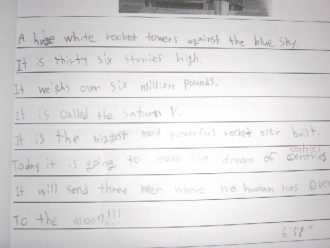 A huge white rocket towers against the blue sky.
It is thirty six stories high.
It weighs over six million pounds.
It is called the Saturn V.
It is the biggest most powerful rocket ever built.
centuries
Today it is going to make the dream of centries
It will send three men where no human has
To the moon!!!
6'58"